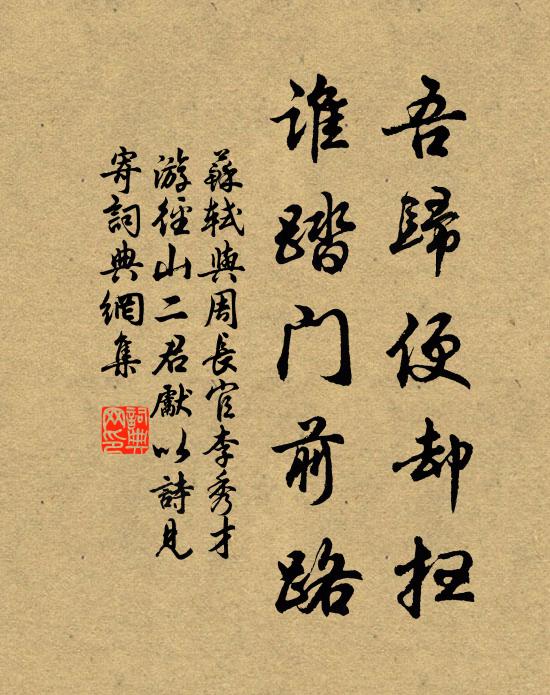 吾歸便却扫
谁踏门前路
蘇軾與周長官李秀才
游徑山二君獻以詩見
寄詞典網集
詞典网印